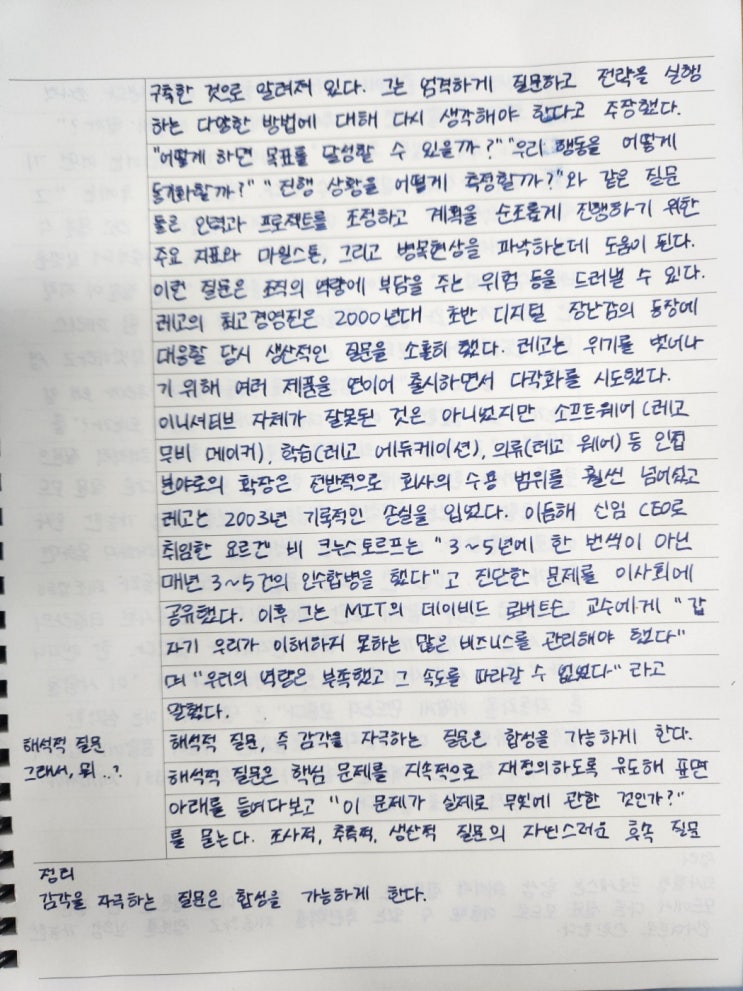 구축한 것으로 알려져 있다. 그는 엄격하게 질문하고 전략을 실행
하는 다양한 방법에 대해 다시 생각해야 한다고 주장했다.
"어떻게 하면 목표를 달성할 수 있을까?" "우리 행동을 어떻게
동기화할까?" "진행 상황을 어떻게 측정할까?"와 같은 질문
들은 인력과 프로젝트를 조정하고 계획을 순조롭게 진행하기 위한
주요 지표와 마일스톤, 그리고 병목현상을 파악하는데 도움이 된다.
이런 질문은 조직의 역량에 부담을 주는 위험 등을 드러낼 수 있다.
레고의 최고경영진은 2000년대 초반 디지털 장난감의 등장에
대응할 당시 생산적인 질문을 소홀히 했다. 레고는 위기를 벗어나
기 위해 여러 제품을 연이어 출시하면서 다각화를 시도했다.
이니셔티브 자체가 잘못된 것은 아니었지만 소프트웨어 (레고
무비 메이커), 학습(레고 에듀케이션), 의류(레고 웨어) 등 인접
분야로의 확장은 전반적으로 회사의 수용 범위를 훨씬 넘어섰고
레고는 2003년 기록적인 손실을 입었다. 이듬해 신임 CEO로
취임한 요르겐 비 크누스토르프는 "3~5년에 한 번씩이 아닌
매년 3~5건의 인수합병을 했다"고 진단한 문제를 이사회에
공유했다. 이후 그는 MIT의 데이비드 로버트슨 교수에게 "갑
자기 우리가 이해하지 못하는 많은 비즈니스를 관리해야 했다"
며 "우리의 역량은 부족했고 그 속도를 따라갈 수 없었다" 라고
말했다.
해석적 질문 해석적 질문, 즉 감각을 자극하는 질문은 합성을 가능하게 한다.
그래서, 뭐..? 해석적 질문은 핵심 문제를 지속적으로 재정의하도록 유도해 표면
아래를 들여다보고 "이 문제가 실제로 무엇에 관한 것인가?"
를 묻는다. 조사적, 추측적, 생산적 질문의 자연스러운 후속 질문
정리
감각을 자극하는 질문은 합성을 가능하게 한다.